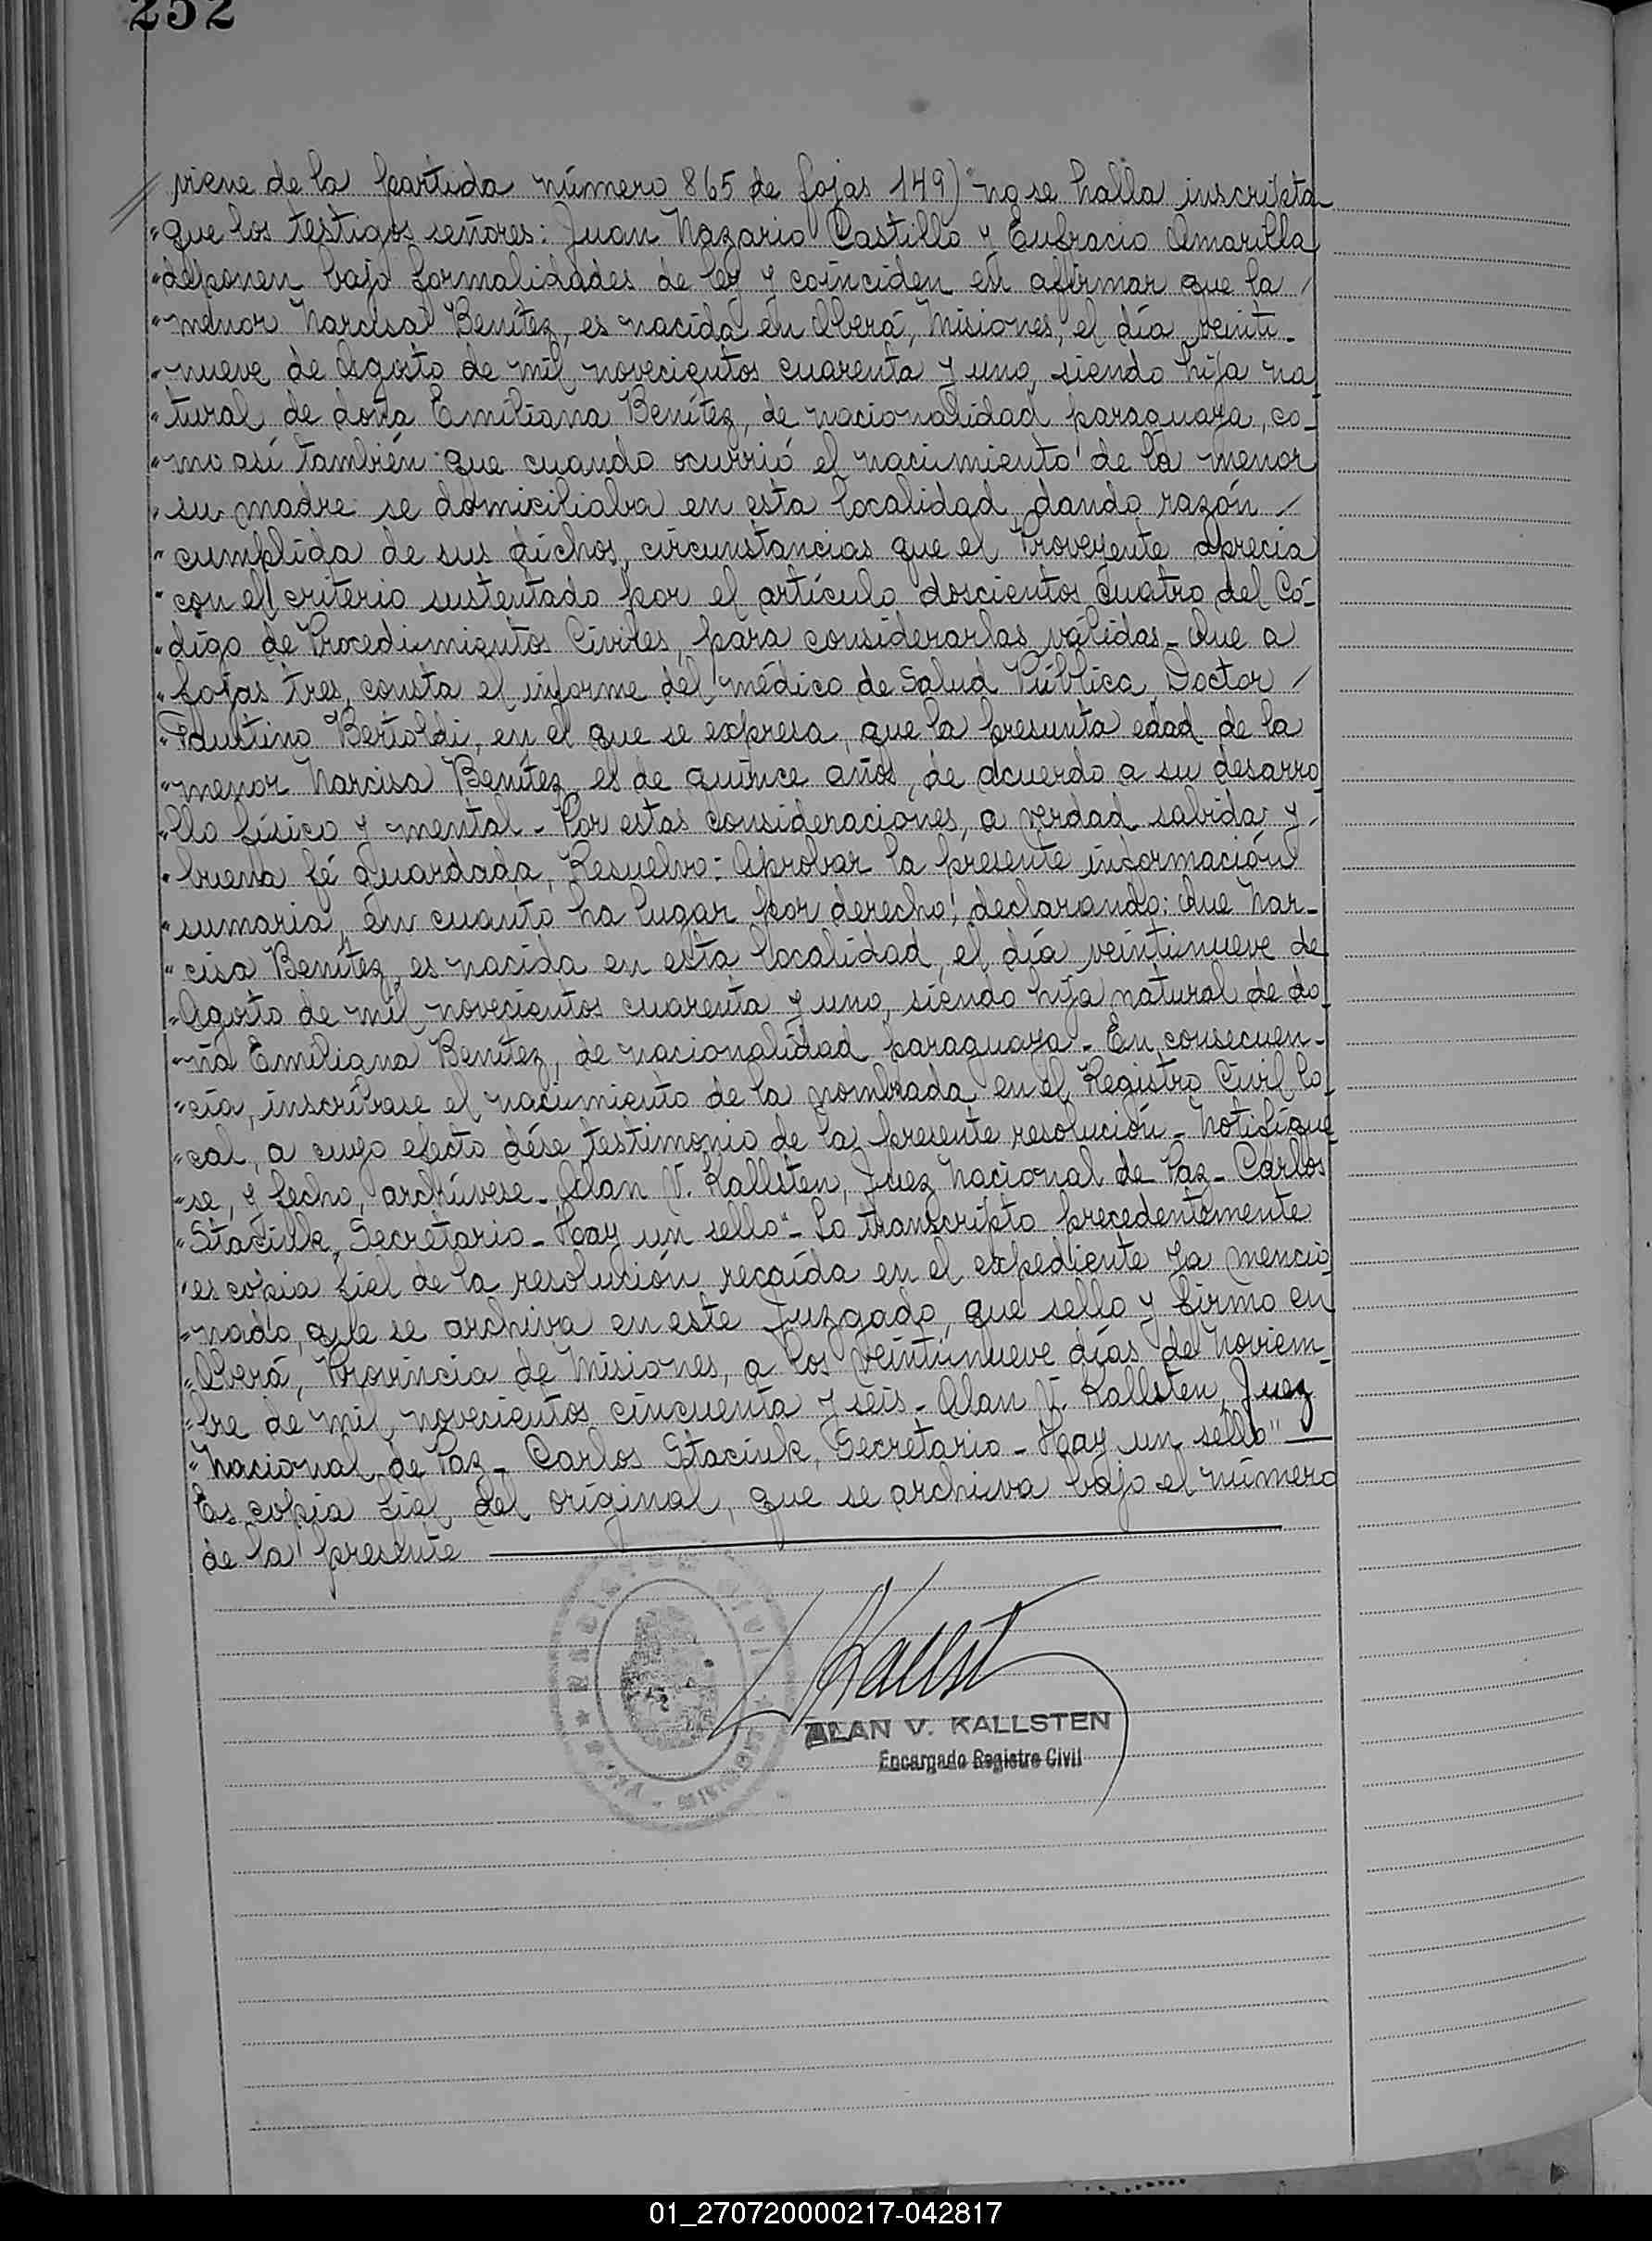 252
viene de la partida número 865 de fojas 149) "no se halla inscripta
"que los testigos señores: Juan Nazario Castillo y Eufracio Amarilla
"deponen bajo formalidades de ley y coinciden en afirmar que la /
"menor Narcisa Benítez, es nacida en Oberá, Misiones, el día veinti-
"nueve de Agosto de mil novecientos cuarenta y uno, siendo hija na-
"tural de doña Emiliana Benítez, de nacionalidad paraguaya, co-
"mo así también que cuando ocurrió el nacimiento de la menor
"su madre se domiciliaba en esta localidad, dando razón /
"cumplida de sus dichos, circunstancias que el Proveyente aprecia
"con el criterio sustentado por el artículo doscientos cuatro del Có-
"digo de Procedimientos Civiles, para considerarlas válidas_ Que a
"fojas tres, consta el informe del médico de Salud Pública, Doctor /
"Faustino Bertoldi, en el que se expresa, que la presunta edad de la
"menor Narcisa Benítez, es de quince años, de acuerdo a su desarro-
"llo físico y mental_ Por estas consideraciones, a verdad sabida y /
"buena fé guardada, Resuelvo: Aprobar la presente información
"sumaria, en cuanto ha lugar por derecho, declarando: Que Nar-
"cisa Benítez, es nacida en esta localidad, el día veintinueve de
"Agosto de mil novecientos cuarenta y uno, siendo hija natural de do-
"ña Emiliana Benítez, de nacionalidad paraguaya_ En consecuen-
"cia, inscríbase el nacimiento de la nombrada en el Registro Civil lo-
"cal, a cuyo efecto dése testimonio de la presente resolución_ Notifíque
"se, y fecho, archívese_ Alan V. Kallsten, Juez Nacional de Paz_ Carlos
"Staciuk, Secretario_ Hay un sello"_ Lo transcripto precedentemente
"es copia fiel de la resolución recaída en el expediente ya mencio-
"nado, que se archiva en este Juzgado, que sello y firmo en
"Oberá, Provincia de Misiones, a los veintinueve días de Noviem-
"bre de mil novecientos cincuenta y seis_ Alan V. Kallsten, Juez
"Nacional de Paz_ Carlos Staciuk, Secretario_ Hay un sello"
Es copia fiel del original, que se archiva bajo el número
de la presente
Kallst
ALAN V. KALLSTEN
Encargado Registro Civil
01_270720000217-042817